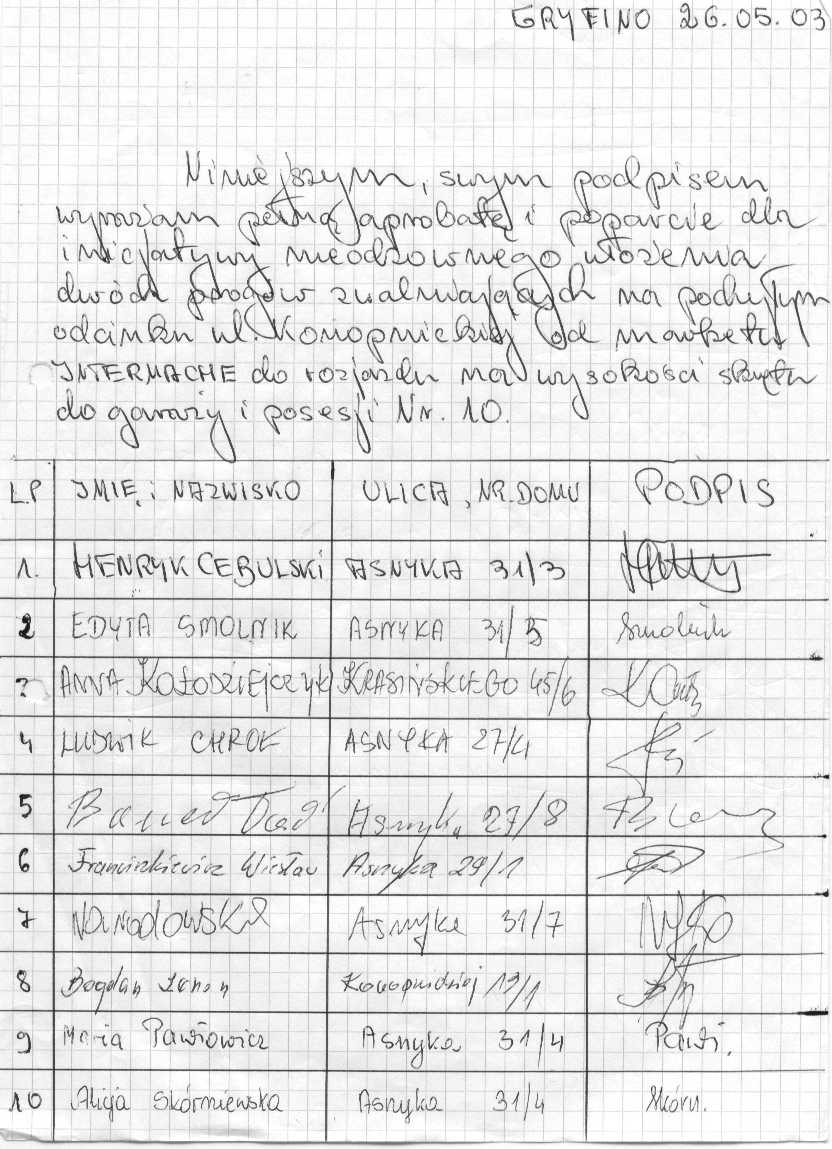 GRYFINO 26.05.03
Niniejszym, swym podpisem
wyrażam pełną aprobatę i poparcie dla
inicjatywy nieodzownego ułożenia
dwóch progów zwalniających na pochyłym
odcinku ul. Konopnickiej od marketu
INTERMACHE do rozjazdu na wysokości skrętu
do garaży i posesji Nr. 10.
L.P IMIĘ i NAZWISKO ULICA, NR. DOMU PODPIS
1. HENRYK CEBULSKI ASNYKA 31/3
2 EDYTA SMOLNIK ASNYKA 31/5 Smolnik
3 ANNA KOŁODZIEJCZYK KRASIŃSKIEGO 45/6
4 LUDWIK CHROŁ ASNYKA 27/4
5 Asnyka 27/8
6 Franciszkiewicz Wiesław Asnyka 29/1
7 Asnyka 31/7
8 Bogdan 19/1
9 Maria Pawłowicz Asnyka 31/4 Pawł.
10 Alicja Skórniewska Asnyka 31/4 Skórn.